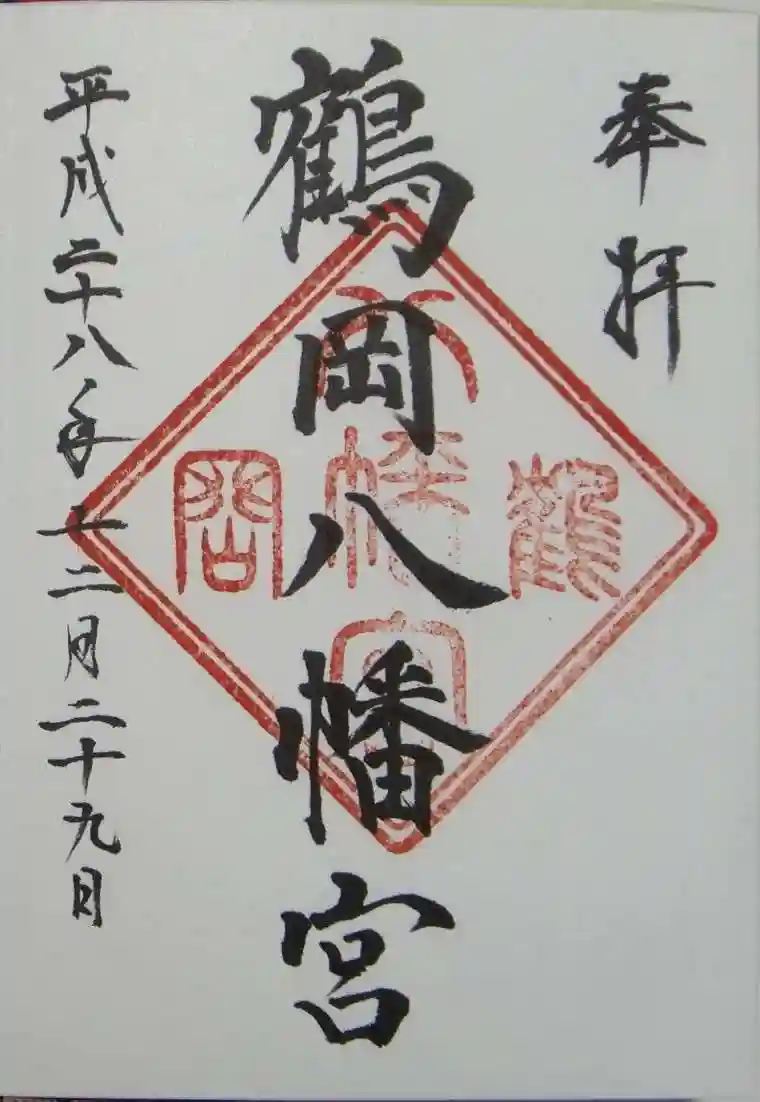 奉拝
鶴岡八幡宮
平成二十八年十二月二十九日
鶴
八
幡
宮
岡